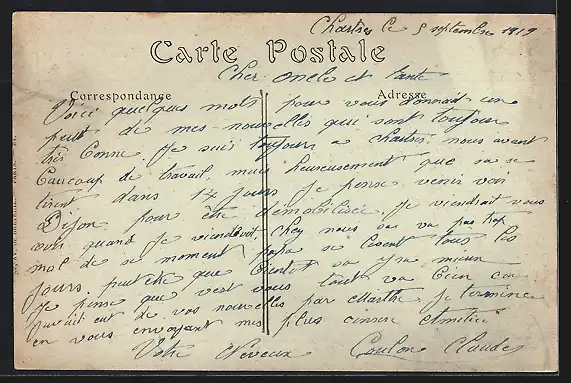 Chartres le 5 septembre 1919
Carte Postale
Cher oncle et tante
Correspondance Adresse
Voici quelques mots pour vous donnair un
peut de mes nouvelles qui sont toujour
très bonne. Je suis toujour a chartres, nous avont
baucoup de travail, mais heureusement que sa se
tirent dans 14 jours je pense venir voir
Dijon pour être démobilisée. Je viendrait vous
voir quand je viendrat chez nous sa va pas trop
mal de se moment papa se lesent tous les
jours peut être que bientot sa ira mieux
Je pense que vest vous tout va bien car
j'avait eut de vos nouvelles par marthe je termine
en vous envoyant mes plus sincère amitiée
Votre Neveux Coulon Claude